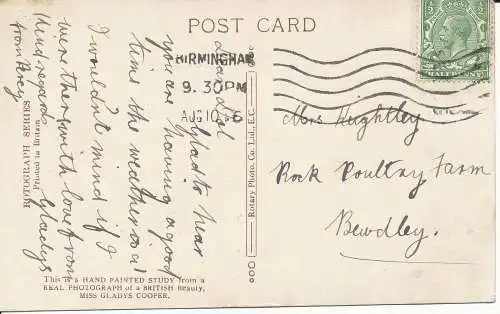 POST CARD
BIRMINGHAM
9.30PM
AUG 10 16
HALFPENNY
Mrs Hughtley
Rock Poultry Farm
Bewdley.
Glad to hear
you are having a good
time the weather is a1
I wouldn't mind if I
were there with love from
Gladys
Kind regards
from Percy
Rotary Photo. Co. Ltd., E.C.
ROTOGRAPH SERIES
Printed in Britain
This is a HAND PAINTED STUDY from a
REAL PHOTOGRAPH of a BRITISH Beauty,
MISS GLADYS COOPER.